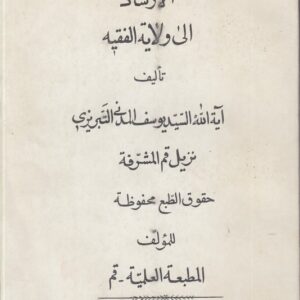 الارشاد
الى ولاية الفقيه
تأليف
آية الله السيد يوسف المدني التبريزي
نزيل قم المشرفة
حقوق الطبع محفوظة
للمؤلف
المطبعة العلمية - قم